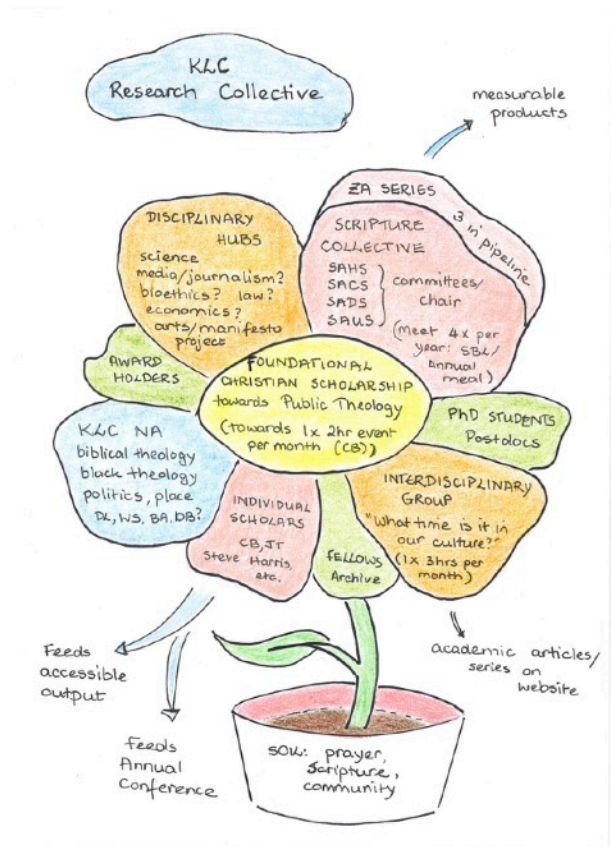 KLC
Research Collective
measurable
products
ZA SERIES
3 in pipeline
DISCIPLINARY
HUBS
science
media/journalism?
bioethics? law?
economics?
arts/manifesto
project
SCRIPTURE
COLLECTIVE
SAHS
SACS
SADS
SAUS
committees/
chair
(meet 4x per
year: SBL/
Annual
meal)
AWARD
HOLDERS
FOUNDATIONAL
CHRISTIAN SCHOLARSHIP
towards Public Theology
(towards 1x 2hr event
per month (CB))
PhD STUDENTS
Postdocs
KLC NA
biblical theology
black theology
politics, place
DL, WS, BA, DB?
INDIVIDUAL
SCHOLARS
CB, JT
Steve Harris
etc.
FELLOWS
Archive
INTERDISCIPLINARY
GROUP
"What time is it in
our culture?"
(1x 3hrs per
month)
Feeds
accessible
output
Feeds
Annual
Conference
academic articles/
series on
website
SOIL: prayer,
Scripture,
community